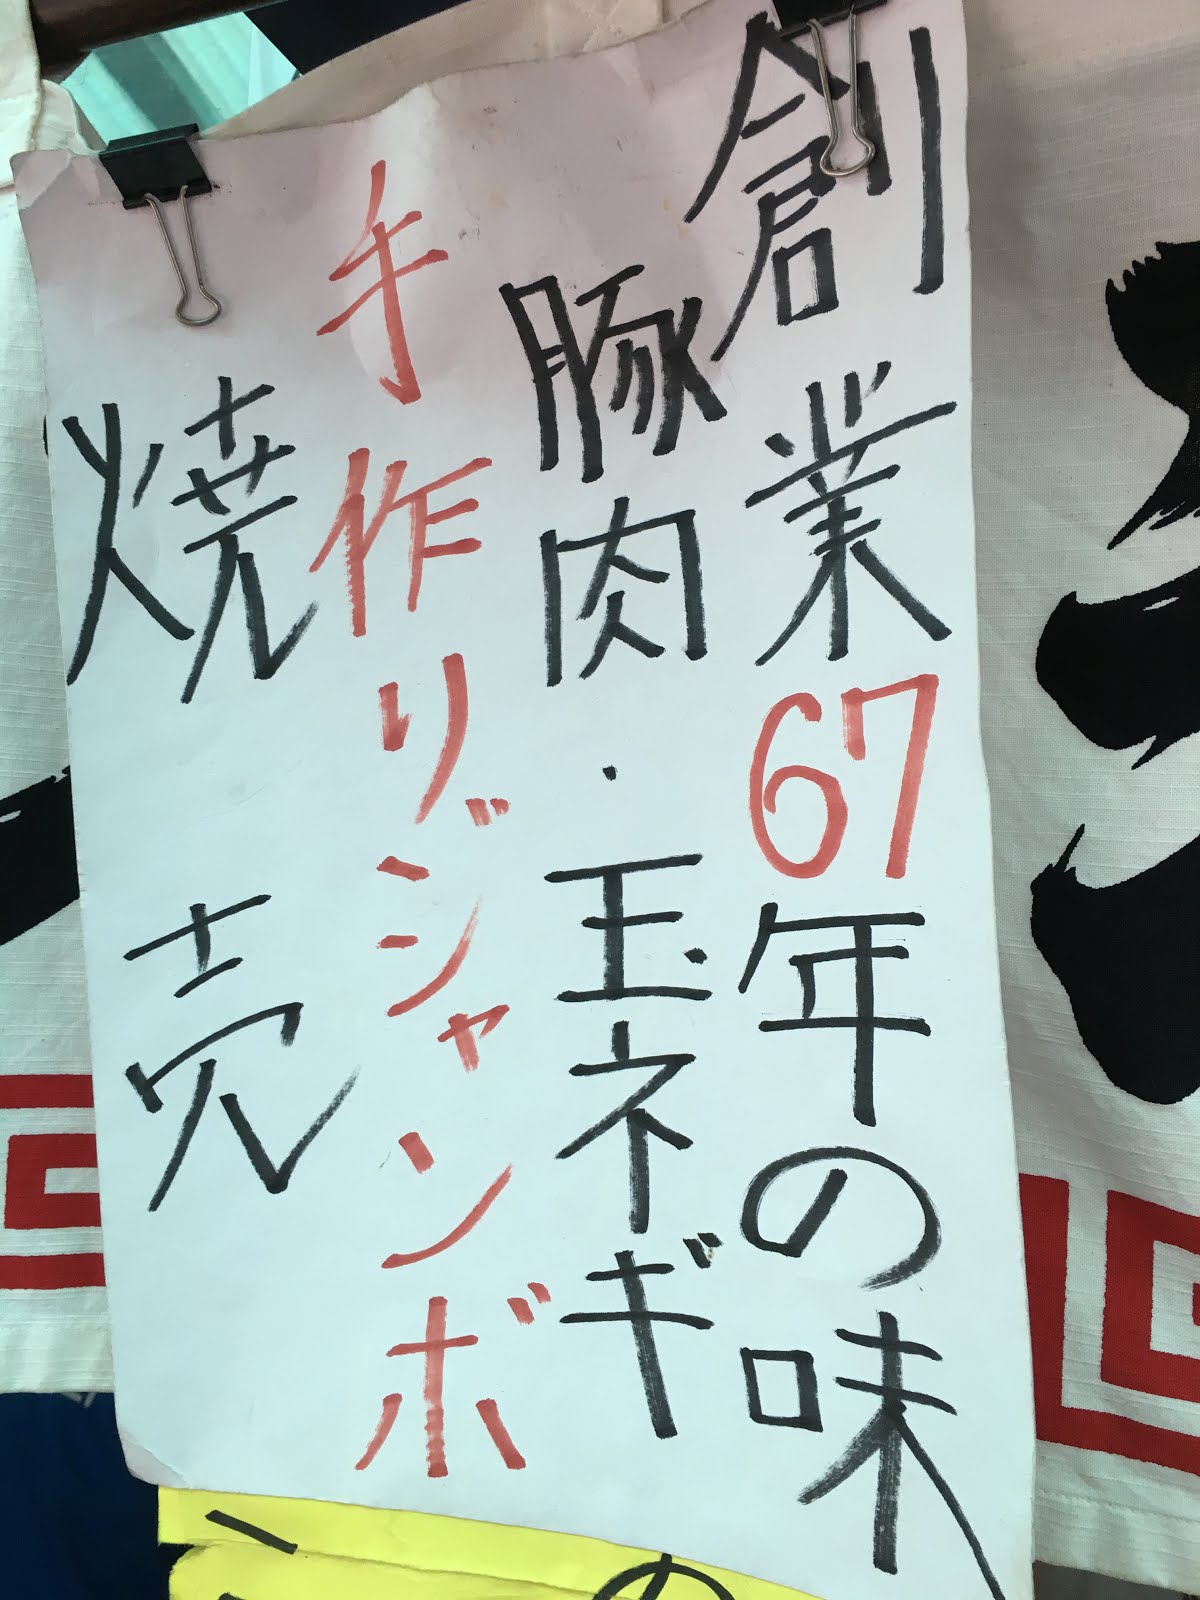 創業67年の味
豚肉・玉ネギ
手作りジャンボ
焼売